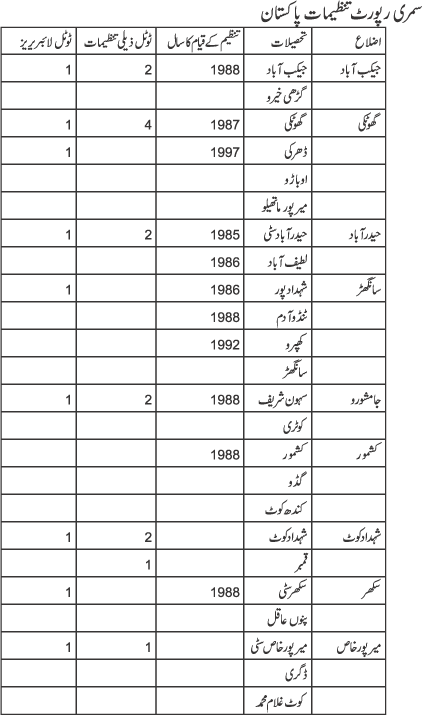 سمری رپورٹ تنظیمات پاکستان
اضلاع تحصیلات تنظیم کے قیام کا سال ٹوٹل ذیلی تنظیمات ٹوٹل لائبریریز
جیکب آباد جیکب آباد 1988 2 1
گڑھی خیرو
گھوٹکی گھوٹکی 1987 4 1
ڈھرکی 1997 1
اوباڑو
میرپور ماتھیلو
حیدرآباد حیدرآباد سٹی 1985 2 1
لطیف آباد 1986
سانگھڑ شہداد پور 1986 1
ٹنڈو آدم 1988
کھپرو 1992
سانگھڑ
جامشورو سہون شریف 1988 2 1
کوٹری
کشمور کشمور 1988
گڈو
کندھ کوٹ
شہداد کوٹ شہداد کوٹ 2 1
قمبر 1
سکھر سکھر سٹی 1988 1
پنوں عاقل
میرپور خاص میرپور خاص سٹی 1 1
ڈگری
کوٹ غلام محمد